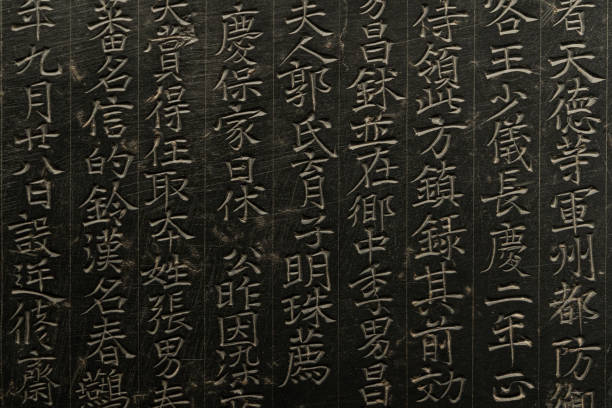 者天德等軍州都防御
各王少儀長慶二年正
侍領此方鎮録其前効
男昌鉢並在鄉中季男昌
夫人郭氏育子明珠薦
慶保家日休 公昨因染
賞得任取本姓張男
蕃名信的鈴漢名春
年九月廿八日設逆修齋